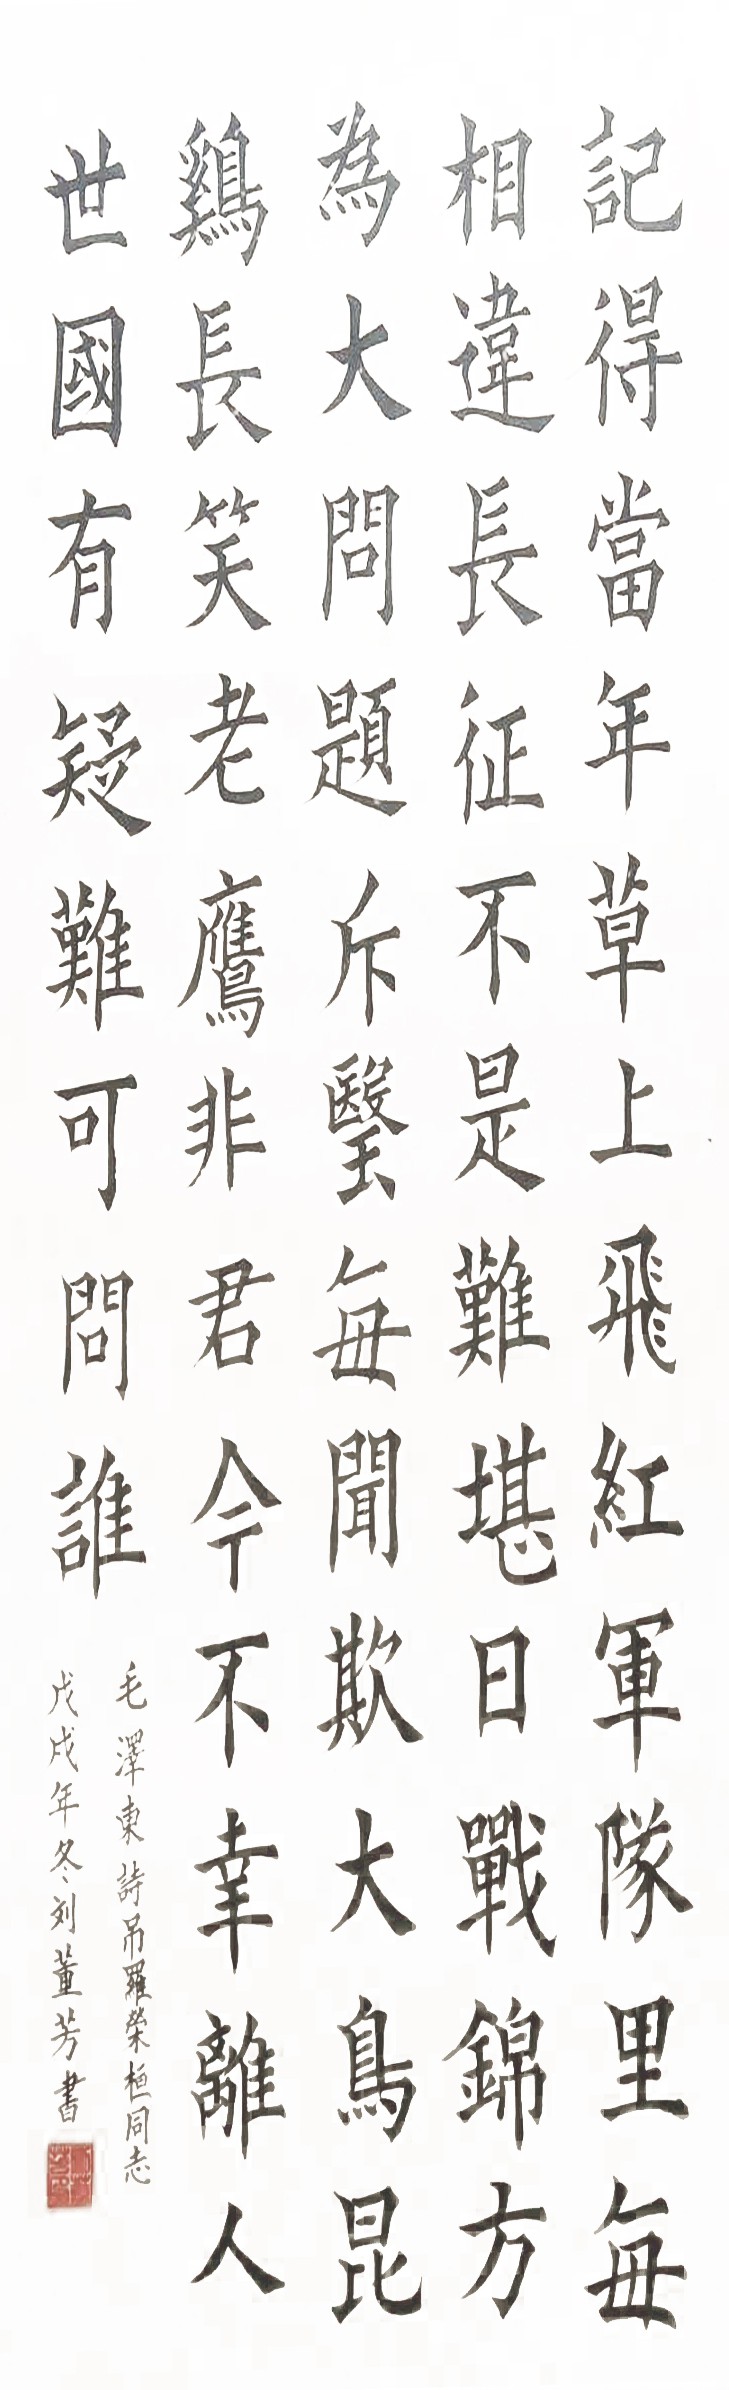 記得當年草上飛紅軍隊里每
相違長征不是難堪日戰錦方
為大問題斥瑿每聞欺大鳥昆
鷄長笑老鷹非君今不幸離人
世國有疑難可問誰
毛澤東詩吊羅榮桓同志
戊戌年冬刘董芳書